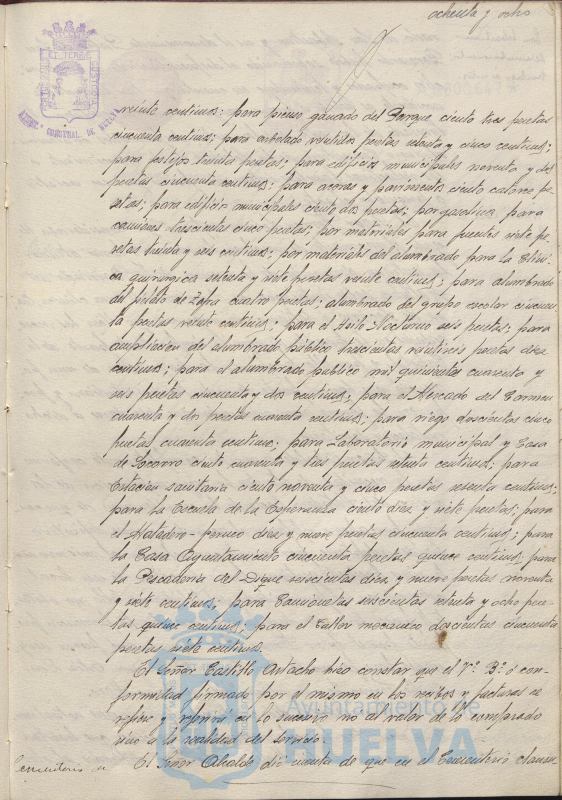 ochenta y ocho
AYUNT. CONSTNAL. DE HUELVA
veinte centimos; para pienso ganado del Parque ciento tres pesetas
cincuenta centimos; para arbolado veintidos pesetas setenta y cinco centimos;
para festejos treinta pesetas; para edificios municipales noventa y dos
pesetas cincuenta centimos; para aceras y pavimentos ciento catorce pe-
setas; para edificio municipales ciento dos pesetas; por gasolina para
camiones trescientas cinco pesetas; por materiales para fuentes siete pe-
setas treinta y seis centimos; por materiales del alumbrado para la Clini-
ca quirurgica setenta y siete pesetas veinte centimos; para alumbrado
del piloto de Zafra cuatro pesetas; alumbrado del grupo escolar cincuen-
ta pesetas veinte centimos; para el Asilo Nocturno seis pesetas; para
ampliacion del alumbrado público trescientas veintiseis pesetas diez
centimos; para el alumbrado publico mil quinientas cuarenta y
seis pesetas cincuenta y dos centimos; para el Mercado del Carmen
cuarenta y dos pesetas cuarenta centimos; para riego doscientas cinco
pesetas cuarenta centimos; para Laboratorio municipal y Casa
de Socorro ciento cuarenta y tres pesetas setenta centimos; para
Estacion sanitaria ciento noventa y cinco pesetas setenta centimos;
para la Escuela de la Esperanza ciento diez y siete pesetas; para
el Matadero diez y nueve pesetas cincuenta centimos; para
la Casa Ayuntamiento cincuenta pesetas quince centimos; para
la Pescaderia del Dique seiscientas diez y nueve pesetas noventa
y siete centimos; para Camionetas seiscientas setenta y ocho pese-
tas quince centimos; para el Taller mecanico doscientas cincuenta
pesetas siete centimos.
El Señor Castillo Artacho hizo constar que el Vº Bº o con-
formidad firmado por el mismo en los recibos y facturas se
refiere y referirá en lo sucesivo no al valor de lo comprado
sino a la realidad del servicio.
Cementerio
El Señor Alcalde dió cuenta de que en el Cementerio
Ayuntamiento de
HUELVA